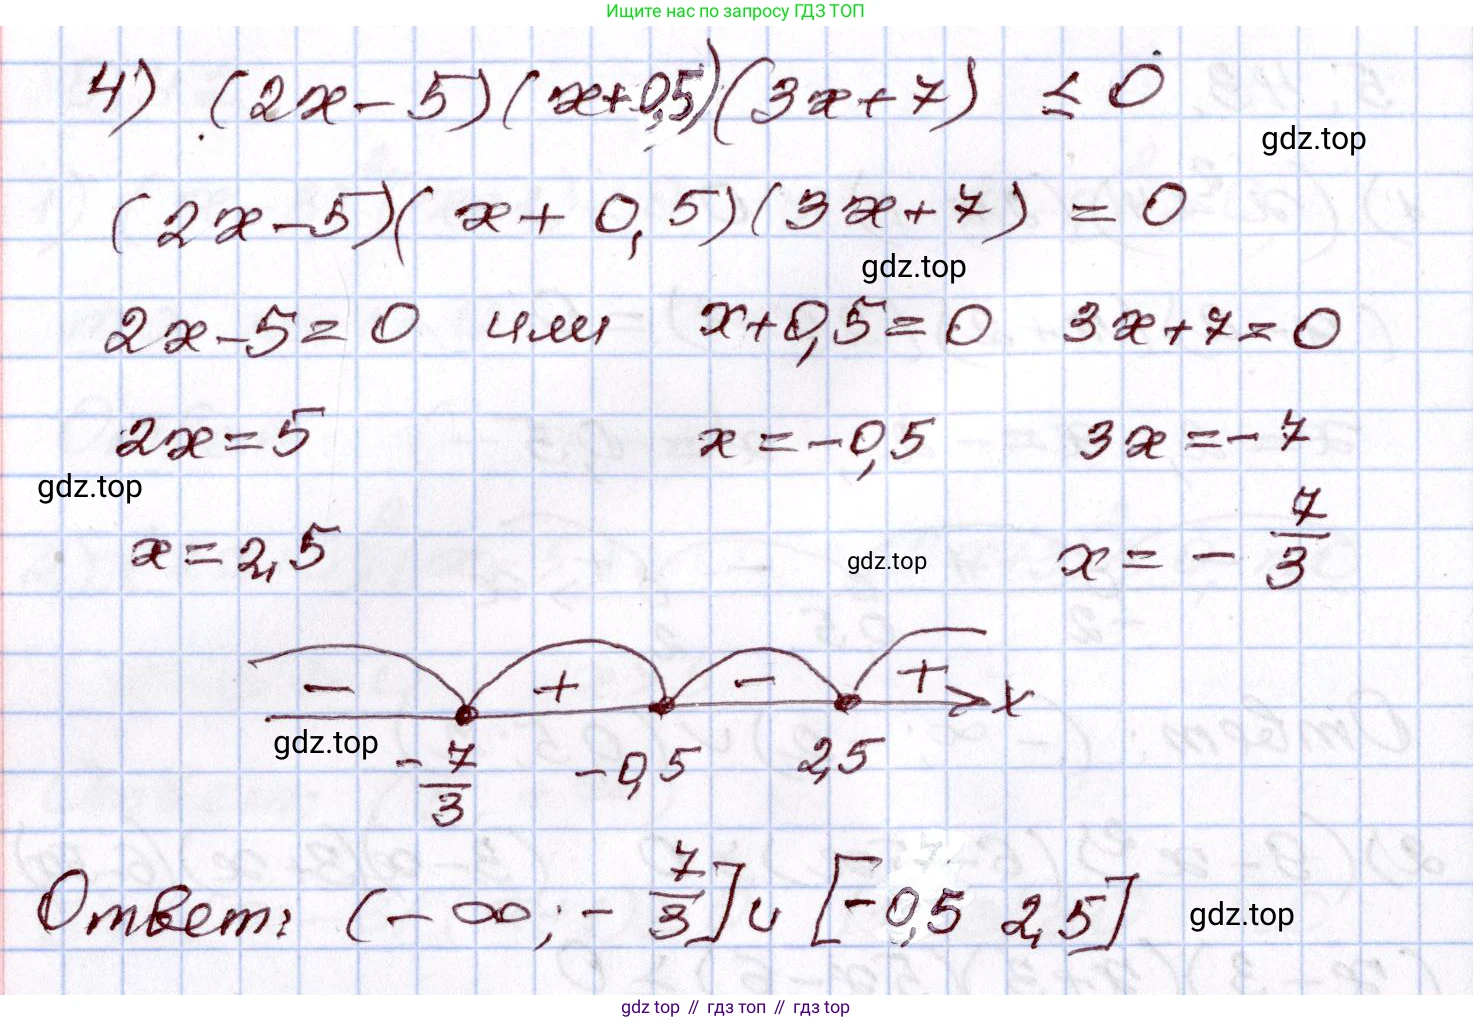 Ищите нас по запросу ГДЗ ТОП
4) (2x-5)(x+0,5)(3x+7) ≤ 0
gdz.top
(2x-5)(x+0,5)(3x+7) = 0
gdz.top
2x-5=0 или x+0,5=0 3x+7=0
2x=5 x=-0,5 3x=-7
gdz.top
x=2,5 gdz.top x=-7/3
- + - + x
gdz.top
-7/3 -0,5 2,5
Ответ: (-∞; -7/3] ∪ [-0,5 2,5]
gdz.top
gdz top // гдз топ // гдз top